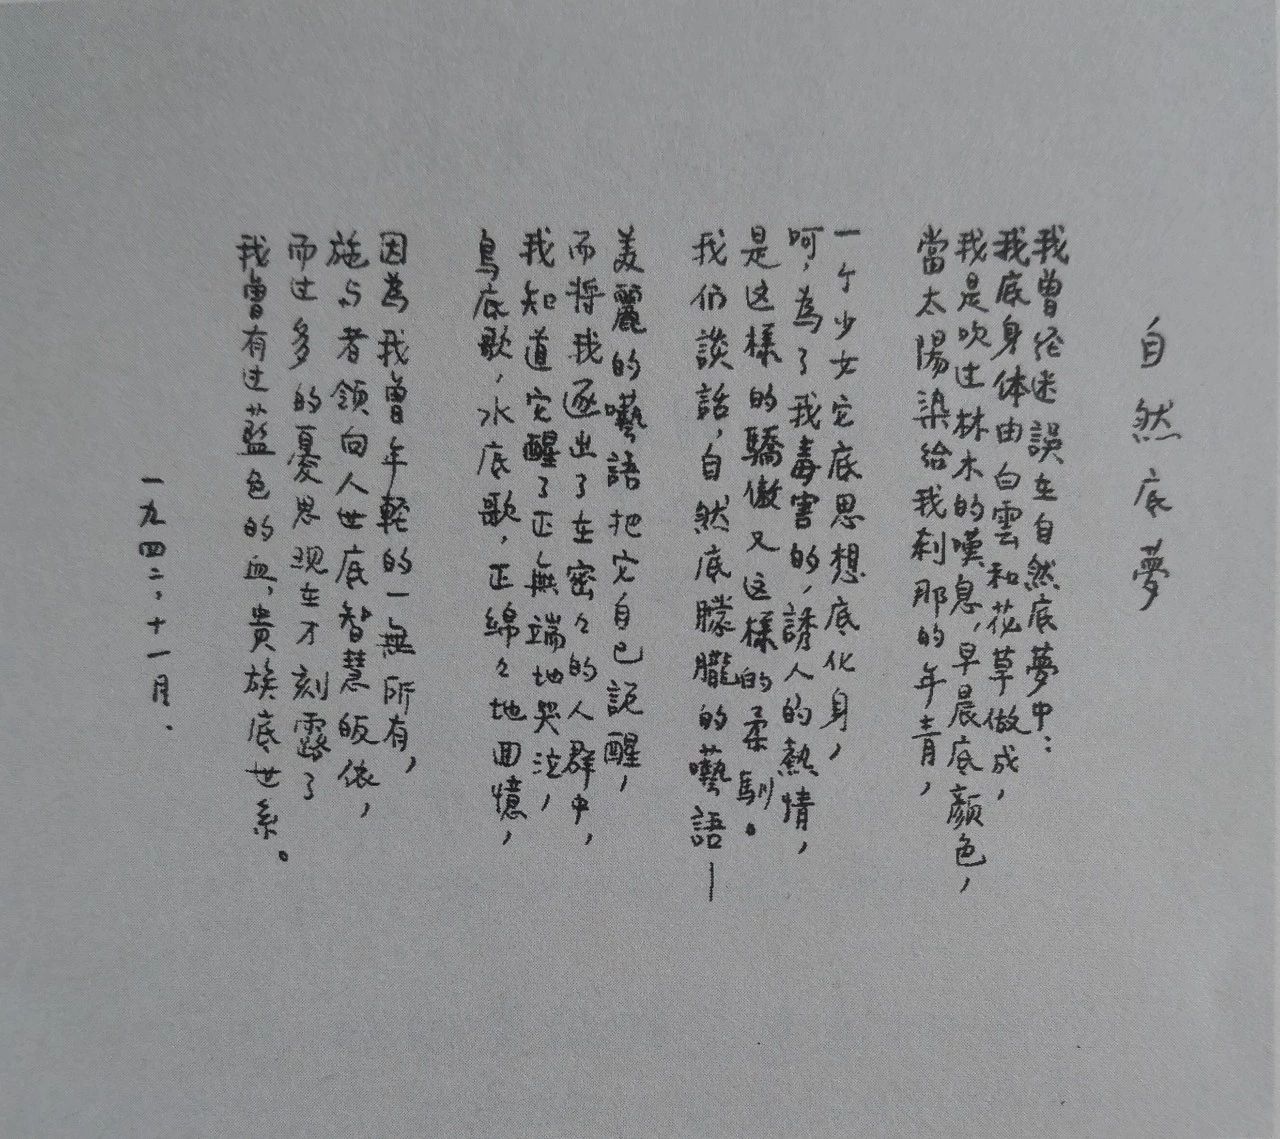 自然底夢
我曾经迷誤在自然底夢中：
我底身体由白雲和花草做成，
我是吹过林木的嘆息，早晨底顏色，
當太陽染给我刹那的年青，
一个少女它底思想底化身，
呵，為了我毒害的，誘人的熱情，
是这樣的驕傲又这樣的柔馴。
我们談話，自然底朦朧的囈語—
美麗的囈語把它自己説醒，
而将我逐出了在密々的人群中，
我知道它醒了正無端地哭泣，
鳥底歌，水底歌，正綿々地回憶，
因為我曾年輕的一無所有，
施与者领向人世底智慧皈依，
而过多的憂思现在才刻露了
我曾有过蓝色的血，貴族底世系。
一九四二、十一月．